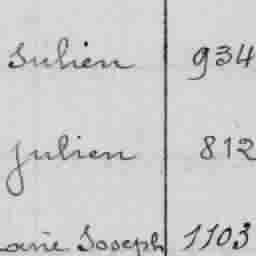 Julien 934
Julien 812
arie Joseph 1103